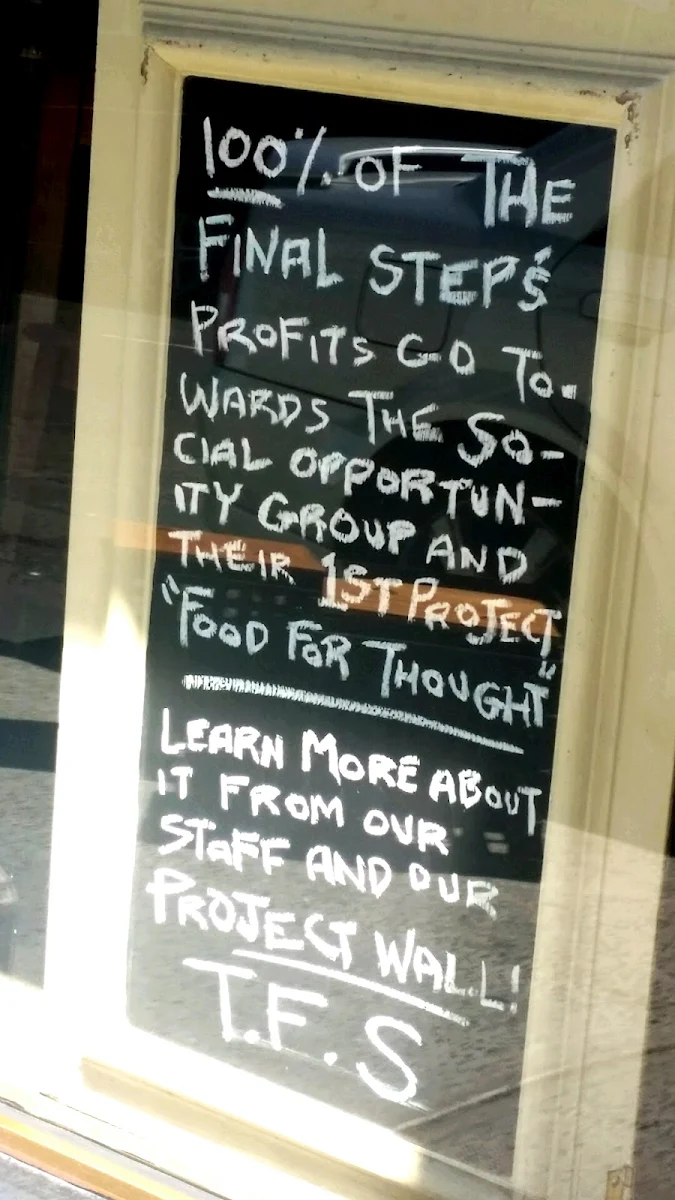 100% OF THE
FINAL STEP'S
PROFITS GO TO-
WARDS THE SO-
CIAL OPPORTUN-
ITY GROUP AND
THEIR 1ST PROJECT
"FOOD FOR THOUGHT"
LEARN MORE ABOUT
IT FROM OUR
STAFF AND OUR
PROJECT WALL!
T.F.S